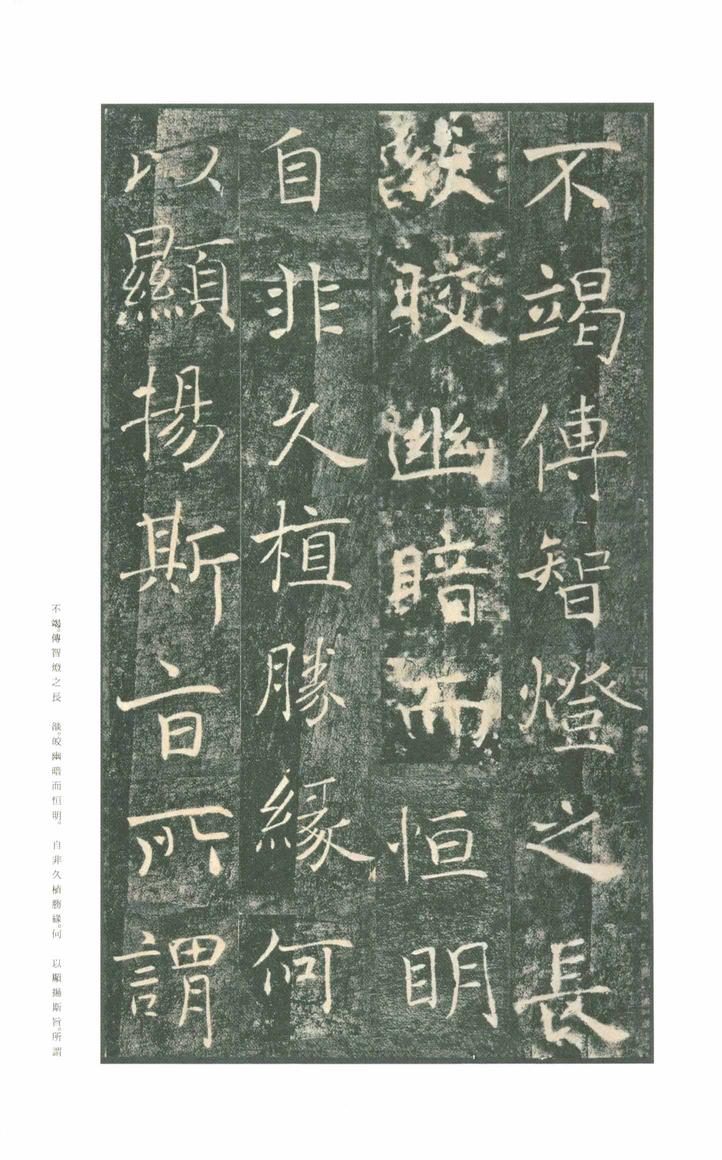 不竭傳智燈之長
燄晈幽暗而恒明
自非久植勝緣何
以顯揚斯旨所謂
不竭。傳智燈之長　燄。皎幽暗而恒明。　自非久植勝緣。何　以顯揚斯旨。所謂